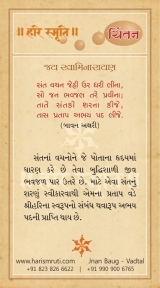 ॥ હરિ સ્મૃતિ ॥
ચિંતન
જય સ્વામિનારાયણ
સંત વચન જેહી ઉર ધરી લીના,
સો જન ભવજલ તરે પ્રવીના;
તાતે સંતકો શરના કીજે,
તાસ પ્રતાપ અભય પદ લીજે.
(બાવન અક્ષરી)
સંતનાં વચનોને જે પોતાના હૃદયમાં
ધારણ કરે છે તેવા બુદ્ધિશાળી જીવ
ભવજળ પાર ઉતરે છે. માટે એવા સંતનું
શરણું સ્વીકારવાથી એમના પ્રતાપ વડે
શ્રીહરિના સ્વરૂપનો સંબંધ થવારૂપ અભય
પદની પ્રાપ્તિ થાય છે.
www.harismruti.com
Jnan Baug - Vadtal
+91 823 826 6622
+91 990 900 6765